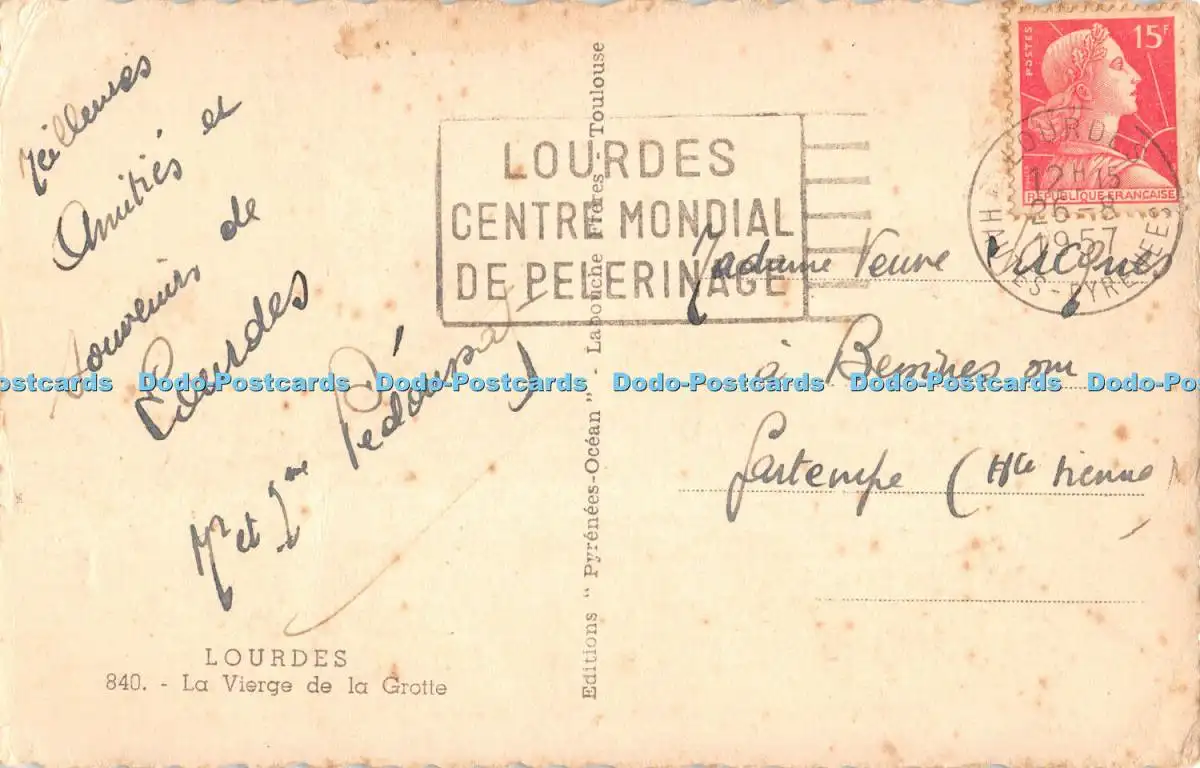 Meilleures
Amitiés et
Souvenirs de
Lourdes
Mr et Mme
LOURDES
840. - La Vierge de la Grotte
Editions " Pyrénées-Océan " - Labouche Frères - Toulouse
LOURDES
CENTRE MONDIAL
DE PELERINAGE
POSTES
15F
REPUBLIQUE FRANÇAISE
LOURDES
12H15
26-8
1957
HAUTES-PYRENEES
Madame Veuve Jacques
à Bessines sur
Gartempe (Hte Vienne
Dodo-Postcards Dodo-Postcards Dodo-Postcards Dodo-Postcards Dodo-Postcards Dodo-Postcards